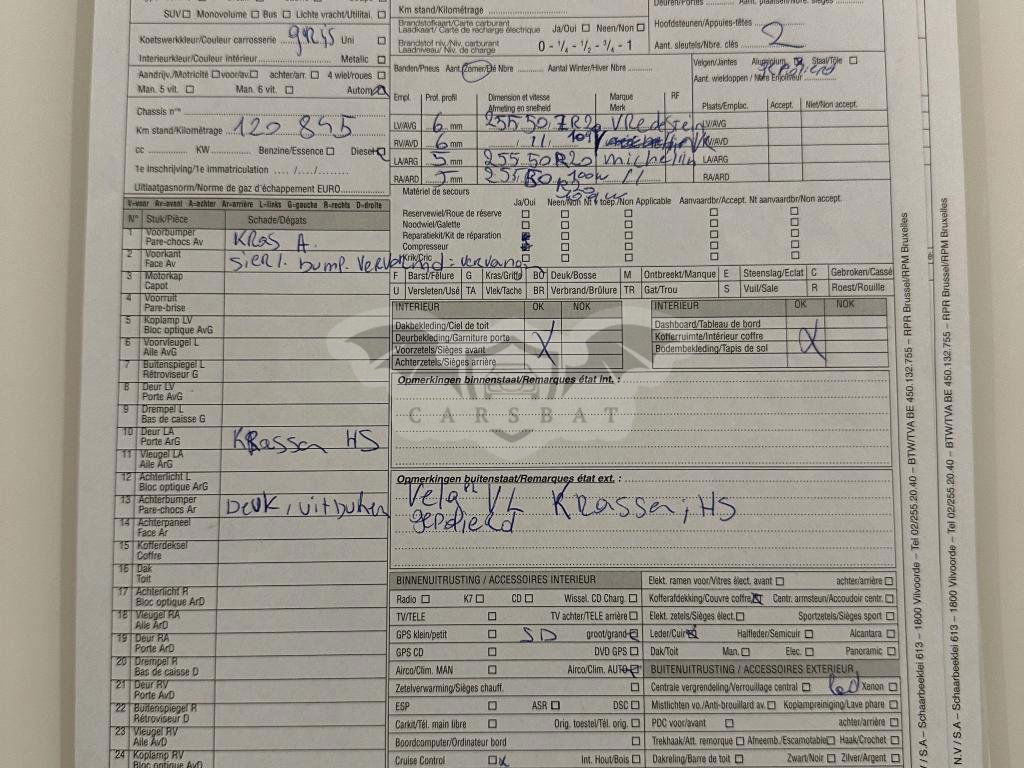 SUV Monovolume Bus Lichte vracht/Utilitai.
Koetswerkkleur/Couleur carrosserie gris Uni
Interieurkleur/Couleur intérieur Metalic
Aandrijv./Motricité voor/av. achter/arr. 4 wiel/roues
Man. 5 vit. Man. 6 vit. Autom.
Chassis n°
Km stand/Kilométrage 120 845
cc KW Benzine/Essence Diesel
1e inschrijving/1e immatriculation
Uitlaatgasnorm/Norme de gaz d'échappement EURO
V-voor Av-avant A-achter Ar-arrière L-links G-gauche R-rechts D-droite
N° Stuk/Pièce Schade/Dégats
1 Voorbumper
Pare-chocs Av KRAS A.
2 Voorkant
Face Av sierl. bump. vervormd = vervang
3 Motorkap
Capot
4 Voorruit
Pare-brise
5 Koplamp LV
Bloc optique AvG
6 Voorvleugel L
Aile AvG
7 Buitenspiegel L
Rétroviseur G
8 Deur LV
Porte AvG
9 Drempel L
Bas de caisse G
10 Deur LA
Porte ArG KRassen HS
11 Vleugel LA
Aile ArG
12 Achterlicht L
Bloc optique ArG
13 Achterbumper
Pare-chocs Ar Deuk, uitduken
14 Achterpaneel
Face Ar
15 Kofferdeksel
Coffre
16 Dak
Toit
17 Achterlicht R
Bloc optique ArD
18 Vleugel RA
Aile ArD
19 Deur RA
Porte ArD
20 Drempel R
Bas de caisse D
21 Deur RV
Porte AvD
22 Buitenspiegel R
Rétroviseur D
23 Vleugel RV
Aile AvD
24 Koplamp RV
Bloc optique AvD
Km stand/Kilométrage
Brandstofkaart/Carte carburant
Laadkaart/Carte de recharge électrique Ja/Oui Neen/Non
Brandstof niv./Niv. carburant
Laadniveau/Niv. de charge 0 - ¼ - ½ - ¾ - 1
Hoofdsteunen/Appuies-têtes
Aant. sleutels/Nbre. clés 2
Banden/Pneus Aant. Zomer/Eté Nbre Aantal Winter/Hiver Nbre
Velgen/Jantes Aluminium Staal/Tôle
Aant. wieldoppen / Nbre Enjoliveur
Empl. Prof. profil Dimension et vitesse
Afmeting en snelheid Marque
Merk RF Plaats/Emplac. Accept. Niet/Non accept.
LV/AVG 6 mm 255.50 ZR20 VRedestein LV/AVG
RV/AVD 6 mm 11 109Y RV/AVD
LA/ARG 5 mm 255.50R20 michelin LA/ARG
RA/ARD 5 mm 255.50 R20 100W 11 RA/ARD
Matériel de secours
Ja/Oui Neen/Non Nt v toep./Non Applicable Aanvaardbr/Accept. Nt aanvaardbr/Non accept.
Reservewiel/Roue de réserve
Noodwiel/Galette
Reparatiekit/Kit de réparation
Compresseur
Krik/Cric
F Barst/Fêlure G Kras/Griffe BO Deuk/Bosse M Ontbreekt/Manque E Steenslag/Eclat C Gebroken/Cassé
U Versleten/Usé TA Vlek/Tache BR Verbrand/Brûlure TR Gat/Trou S Vuil/Sale R Roest/Rouille
INTERIEUR OK NOK INTERIEUR OK NOK
Dakbekleding/Ciel de toit Dashboard/Tableau de bord
Deurbekleding/Garniture porte X Kofferruimte/Intérieur coffre X
Voorzetels/Sièges avant Bodembekleding/Tapis de sol
Achterzetels/Sièges arrière
Opmerkingen binnenstaat/Remarques état Int. :
CARSBAT
Opmerkingen buitenstaat/Remarques état ext. :
Velg VL KRassen, HS
BINNENUITRUSTING / ACCESSOIRES INTERIEUR
Radio K7 CD Wissel. CD Charg.
TV/TELE TV achter/TELE arrière
GPS klein/petit SD groot/grand
GPS CD DVD GPS
Airco/Clim. MAN Airco/Clim. AUTO
Zetelverwarming/Sièges chauff.
ESP ASR DSC
Carkit/Tél. main libre Orig. toestel/Tél. orig.
Boordcomputer/Ordinateur bord
Cruise Control x Int. Hout/Bois
Elekt. ramen voor/Vitres élect. avant achter/arrière
Kofferafdekking/Couvre coffre Centr. armsteun/Accoudoir centr.
Elekt. zetels/Sièges élect. Sportzetels/Sièges sport
Leder/Cuir Halfleder/Semicuir Alcantara
Dak/Toit Man. Elec. Panoramic
BUITENUITRUSTING / ACCESSOIRES EXTERIEUR
Centrale vergrendeling/Verrouillage central led Xenon
Mistlichten vo./Anti-brouillard av. Koplampreiniging/Lave phare
PDC voor/avant achter/arrière
Trekhaak/Att. remorque Afneemb./Escamotable Haak/Crochet
Dakreling/Barre de toit Zwart/Noir Zilver/Argent
N.V / S.A – Schaarbeeklei 613 – 1800 Vilvoorde – Tel 02/255.20.40 – BTW/TVA BE 450.132.755 – RPR Brussel/RPM Bruxelles
N.V / S.A – Schaarbeeklei 613 – 1800 Vilvoorde – Tel 02/255.20.40 – BTW/TVA BE 450.132.755 – RPR Brussel/RPM Bruxelles